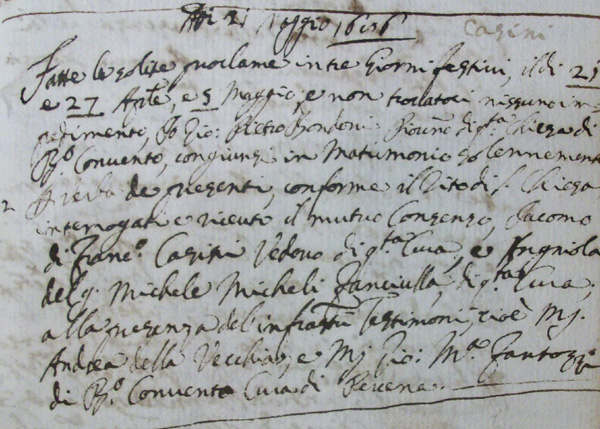 Adi 21 Maggio 1606
Casini
Fatte le solite proclame in tre Giorni festivi, il di 25
e 27 Aprle, e 5 Maggio, e non trovatoci nissuno im
pedimento, Io Gio: Pietro Bondoni Piovno di qta Chiesa di
Bo Convento, congiunsi in Matrimonio solennemente
2
P verba de presenti, conforme il Rito di S. Chiesa,
interrogati e ricevto il mutuo Consenso, Jacomo
di Franco Casini Vedovo di qta Cura, e
del q. Michele Micheli fanciulla, di qta Cura,
alla presenza del infrastti Testimoni, cioè Mj.
Andrea della Vecchia, e Mj Gio: Ma. Fantozzi
di Bo Convento Cura di